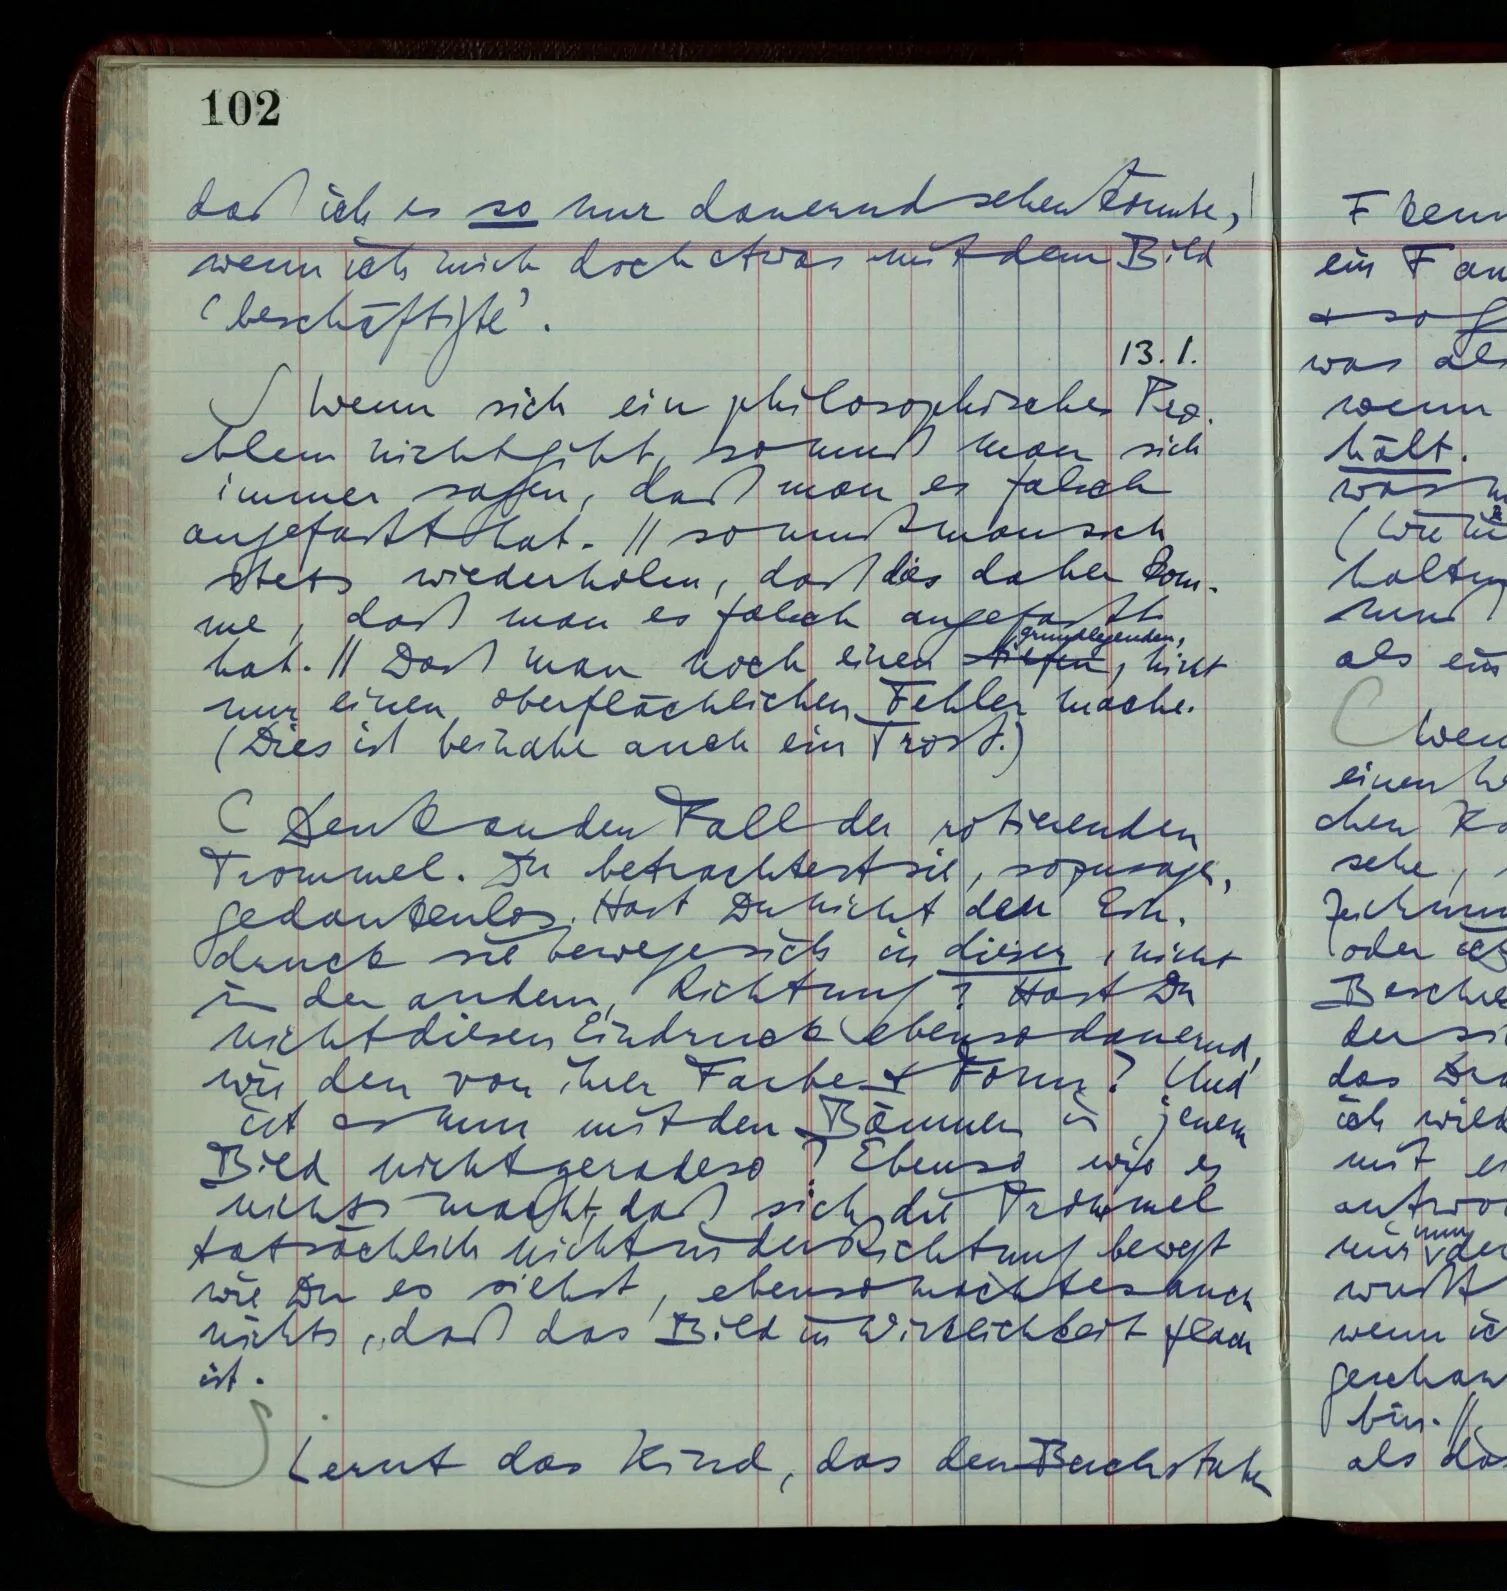 102
daß ich es so nur dauernd sehen könnte,
wenn ich mich doch etwas mit dem Bild
‘beschäftigte’.
13.1.
Wenn sich ein philosophisches Pro-
blem nicht gibt, so muß man sich
immer sagen, daß man es falsch
angefaßt hat. // so muß man sich
stets wiederholen, daß dies daher kom-
me, daß man es falsch angefaßt
grundlegenden,
hat. // Daß man noch einen tiefen, nicht
nur einen oberflächlichen Fehler mache.
(Dies ist beinahe auch ein Trost.)
Denk an den Fall der rotierenden
Trommel. Du betrachtest sie, sozusagen,
gedankenlos. Hast Du nicht den Ein-
druck sie bewege sich in dieser, nicht
in der andern, Richtung? Hast Du
nicht diesen Eindruck ebenso dauernd,
wie den von ihrer Farbe & Form? Und
ist es nun mit den Bäumen in jenem
Bild nicht geradeso? Ebenso wie es
nichts macht, daß sich die Trommel
tatsächlich nicht in der Richtung bewegt
wie Du es siehst, ebenso macht es auch
nichts, daß das Bild in Wirklichkeit flach
ist.
Lernt das Kind, das den Buchstaben
F kenn
ein F an
was als
wenn
hält.
als ein
Wen
einen
chen
sehe,
oder
das
ich wied
mit
nun
wenn ich
bin. //
als das